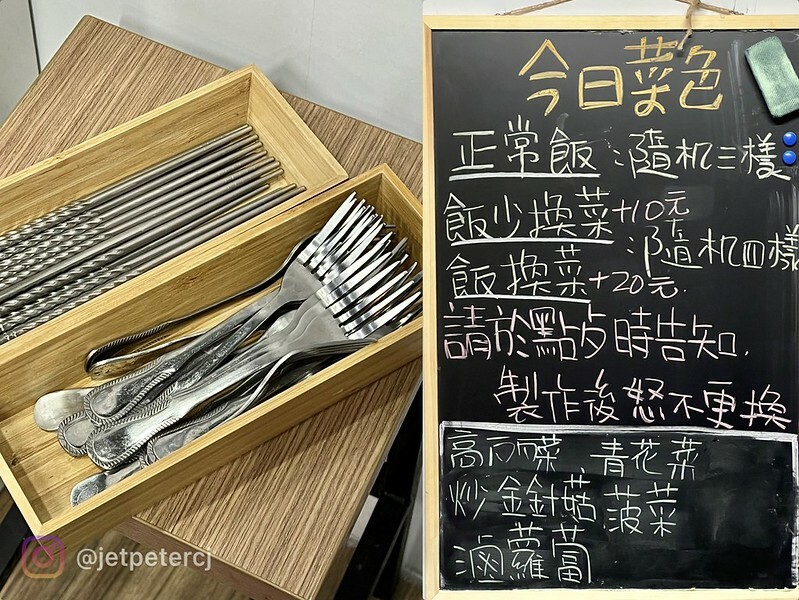 今日菜色
正常飯：隨机三樣
飯少換菜+10元
：隨机四樣
飯換菜+20元.
請於點餐時告知.
製作後恕不更換
高麗菜、青花菜
炒金針菇 菠菜
滷蘿蔔
@jetpetercj